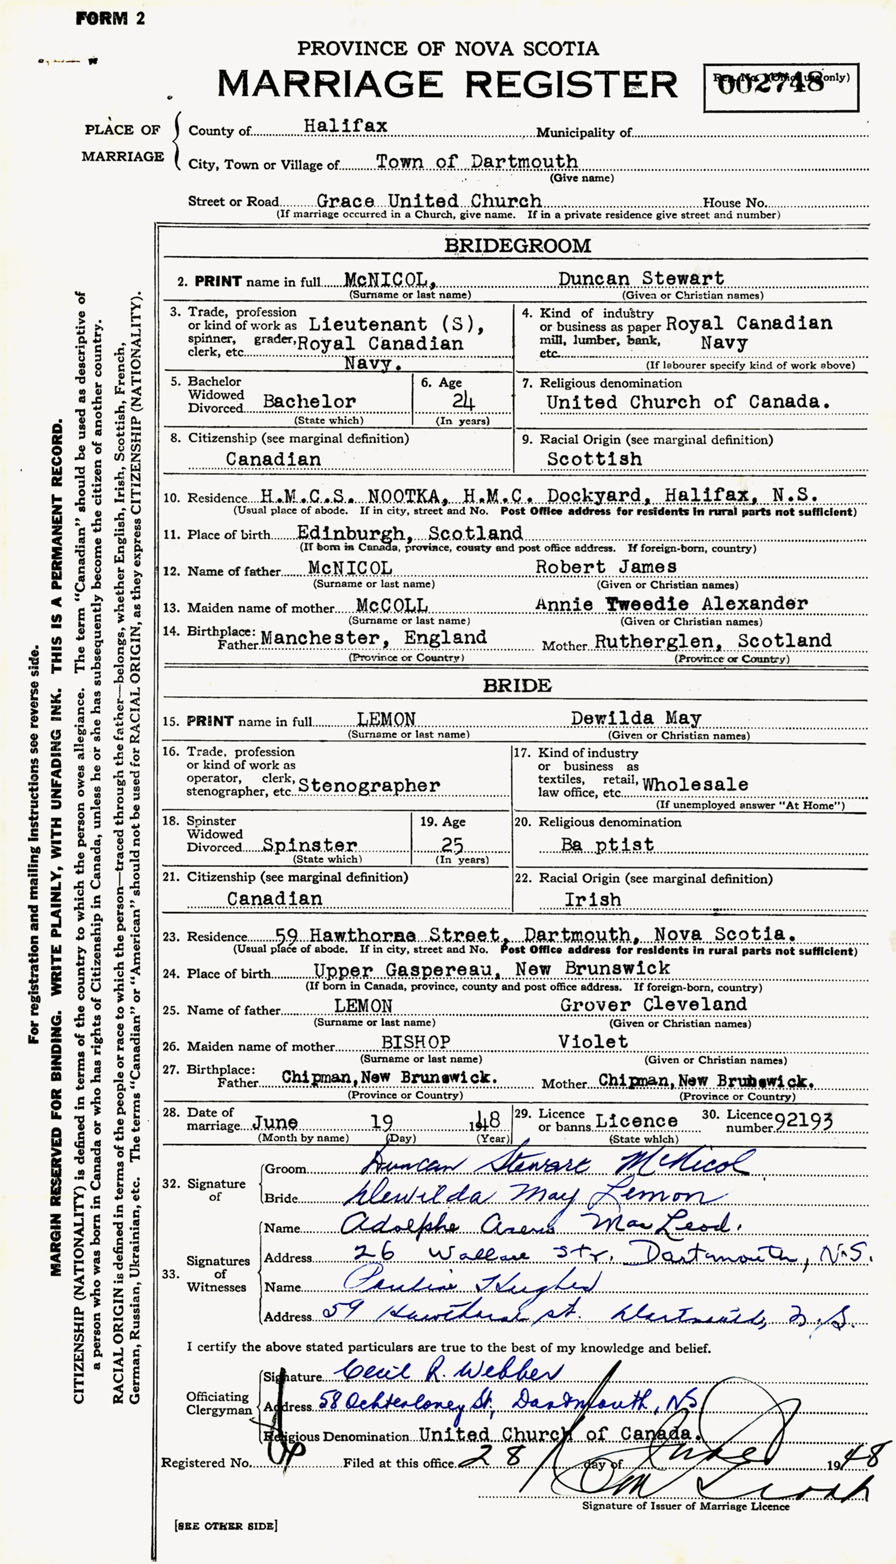 FORM 2
PROVINCE OF NOVA SCOTIA
MARRIAGE REGISTER
002748
PLACE OF MARRIAGE
County of Halifax Municipality of
City, Town or Village of Town of Dartmouth
(Give name)
Street or Road Grace United Church House No.
(If marriage occurred in a Church, give name. If in a private residence give street and number)
BRIDEGROOM
2. PRINT name in full McNICOL, Duncan Stewart
(Surname or last name) (Given or Christian names)
3. Trade, profession or kind of work as spinner, grader, clerk, etc. Lieutenant (S), Royal Canadian Navy.
4. Kind of industry or business as paper mill, lumber, bank, etc. Royal Canadian Navy
(If labourer specify kind of work above)
5. Bachelor Widowed Divorced Bachelor
(State which)
6. Age 24
(In years)
7. Religious denomination
United Church of Canada.
8. Citizenship (see marginal definition)
Canadian
9. Racial Origin (see marginal definition)
Scottish
10. Residence H.M.C.S. NOOTKA, H.M.C. Dockyard, Halifax, N.S.
(Usual place of abode. If in city, street and No. Post Office address for residents in rural parts not sufficient)
11. Place of birth Edinburgh, Scotland
(If born in Canada, province, county and post office address. If foreign-born, country)
12. Name of father McNICOL Robert James
(Surname or last name) (Given or Christian names)
13. Maiden name of mother McCOLL Annie Tweedie Alexander
(Surname or last name) (Given or Christian names)
14. Birthplace: Father Manchester, England Mother Rutherglen, Scotland
(Province or Country) (Province or Country)
BRIDE
15. PRINT name in full LEMON Dewilda May
(Surname or last name) (Given or Christian names)
16. Trade, profession or kind of work as operator, clerk, stenographer, etc. Stenographer
17. Kind of industry or business as textiles, retail, law office, etc. Wholesale
(If unemployed answer "At Home")
18. Spinster Widowed Divorced Spinster
(State which)
19. Age 25
(In years)
20. Religious denomination
Ba ptist
21. Citizenship (see marginal definition)
Canadian
22. Racial Origin (see marginal definition)
Irish
23. Residence 59 Hawthorne Street, Dartmouth, Nova Scotia.
(Usual place of abode. If in city, street and No. Post Office address for residents in rural parts not sufficient)
24. Place of birth Upper Gaspereau, New Brunswick
(If born in Canada, province, county and post office address. If foreign-born, country)
25. Name of father LEMON Grover Cleveland
(Surname or last name) (Given or Christian names)
26. Maiden name of mother BISHOP Violet
(Surname or last name) (Given or Christian names)
27. Birthplace: Father Chipman, New Brunswick. Mother Chipman, New Brunswick.
(Province or Country) (Province or Country)
28. Date of marriage June 19 1948
(Month by name) (Day) (Year)
29. Licence or banns Licence
(State which)
30. Licence number 92193
32. Signature of
Groom Duncan Stewart McNicol
Bride Dewilda May Lemon
33. Signatures of Witnesses
Name Adolphe MacLeod.
Address 26 Wallace Str. Dartmouth, N.S.
Name Pauline Hughes
Address 59 Hawthorne St. Dartmouth, N.S.
I certify the above stated particulars are true to the best of my knowledge and belief.
Officiating Clergyman
Signature Cecil R. Webber
Address 58 Ochterloney St, Dartmouth, NS
Religious Denomination United Church of Canada.
Registered No. Filed at this office 28 day of June 1948
Signature of Issuer of Marriage Licence
[SEE OTHER SIDE]
For registration and mailing instructions see reverse side.
MARGIN RESERVED FOR BINDING. WRITE PLAINLY, WITH UNFADING INK. THIS IS A PERMANENT RECORD.
CITIZENSHIP (NATIONALITY) is defined in terms of the country to which the person owes allegiance. The term "Canadian" should be used as descriptive of
a person who was born in Canada or who has rights of Citizenship in Canada, unless he or she has subsequently become the citizen of another country.
RACIAL ORIGIN is defined in terms of the people or race to which the person—traced through the father—belongs, whether English, Irish, Scottish, French,
German, Russian, Ukrainian, etc. The terms "Canadian" or "American" should not be used for RACIAL ORIGIN, as they express CITIZENSHIP (NATIONALITY).